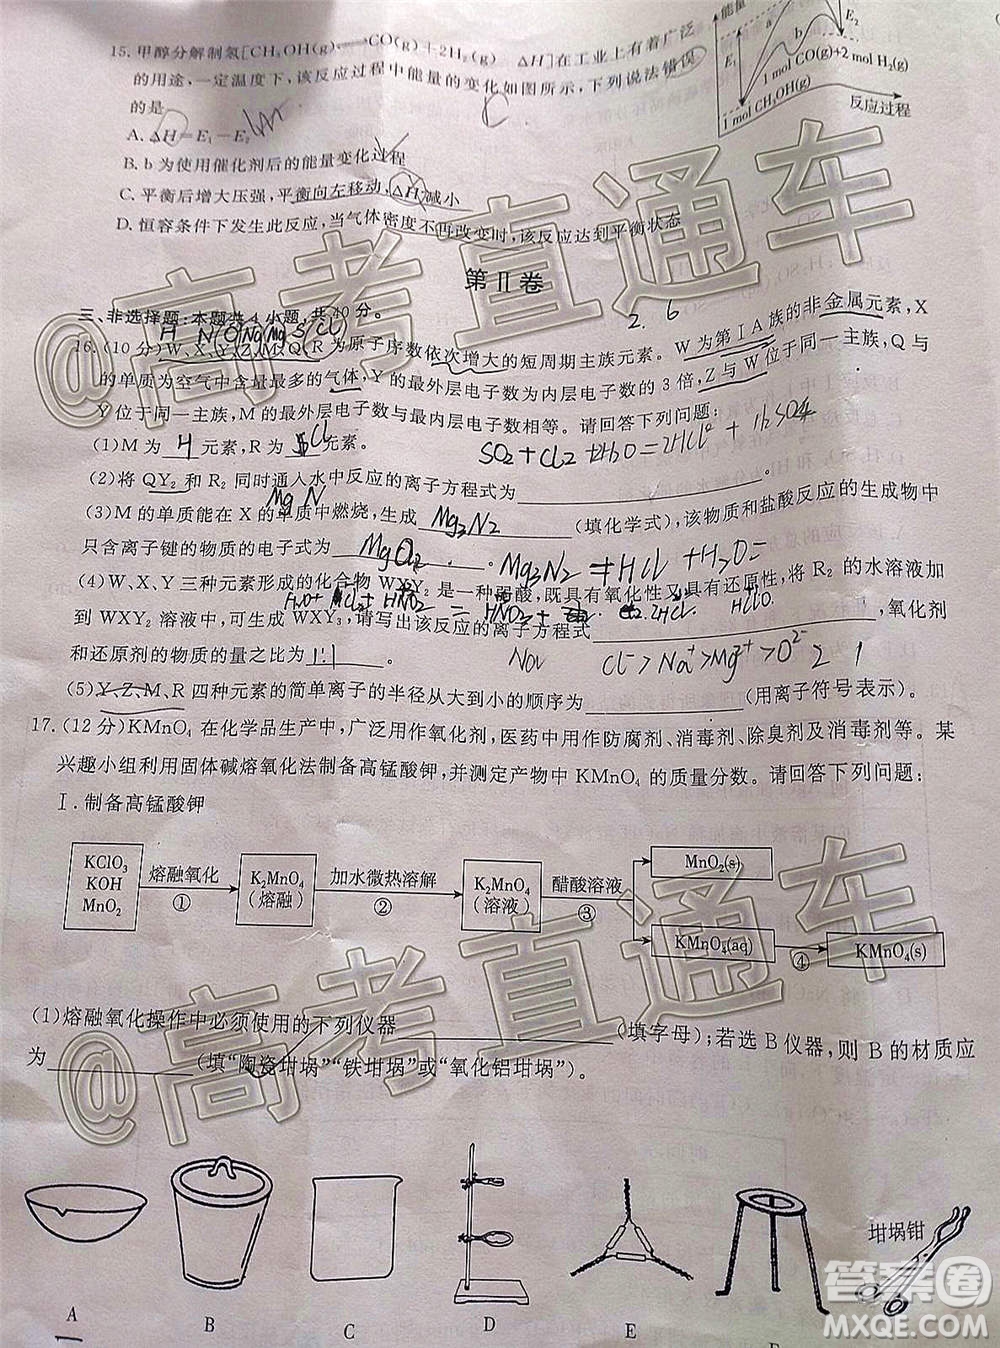 能量
E₁
E₂
b
1 mol CO(g)+2 mol H₂(g)
1 mol CH₃OH(g)
反应过程
15.甲醇分解制氢[CH₃OH(g)⟶CO(g)+2H₂(g) ΔH]在工业上有着广泛
的用途,一定温度下,该反应过程中能量的变化如图所示,下列说法错误
的是
C
A.ΔH=E₁-E₂
B.b为使用催化剂后的能量变化过程
C.平衡后增大压强,平衡向左移动,ΔH减小
D.恒容条件下发生此反应,当气体密度不再改变时,该反应达到平衡状态
第Ⅱ卷
三、非选择题:本题共4小题,共40分。
H N O Na Mg S Cl
2. 6
16.(10分)W、X、Y、Z、M、Q、R为原子序数依次增大的短周期主族元素。W为第ⅠA族的非金属元素,X
的单质为空气中含量最多的气体,Y的最外层电子数为内层电子数的3倍,Z与W位于同一主族,Q与
Y位于同一主族,M的最外层电子数与最内层电子数相等。请回答下列问题:
(1)M为 H 元素,R为 Cl 元素。
SO₂+Cl₂+H₂O=2HCl+H₂SO₄
(2)将QY₂和R₂同时通入水中反应的离子方程式为。
Mg N
(3)M的单质能在X的单质中燃烧,生成 Mg₃N₂ (填化学式),该物质和盐酸反应的生成物中
只含离子键的物质的电子式为 MgCl₂ 。 Mg₃N₂+HCl+H₂O=
(4)W、X、Y三种元素形成的化合物WXY₂是一种弱酸,既具有氧化性又具有还原性,将R₂的水溶液加
H₂O+Cl₂+HNO₂=HNO₃+2HCl. HClO
到WXY₂溶液中,可生成WXY₃,请写出该反应的离子方程式,氧化剂
和还原剂的物质的量之比为 1:1 。 Cl⁻>Na⁺>Mg²⁺>O²⁻ 2 1
(5)Y、Z、M、R四种元素的简单离子的半径从大到小的顺序为(用离子符号表示)。
17.(12分)KMnO₄在化学品生产中,广泛用作氧化剂,医药中用作防腐剂、消毒剂、除臭剂及消毒剂等。某
兴趣小组利用固体碱熔氧化法制备高锰酸钾,并测定产物中KMnO₄的质量分数。请回答下列问题:
Ⅰ.制备高锰酸钾
KClO₃
KOH
MnO₂
熔融氧化
①
K₂MnO₄
(熔融)
加水微热溶解
②
K₂MnO₄
(溶液)
醋酸溶液
③
MnO₂(s)
KMnO₄(aq)
④
KMnO₄(s)
(1)熔融氧化操作中必须使用的下列仪器(填字母);若选B仪器,则B的材质应
为(填“陶瓷坩埚”“铁坩埚”或“氧化铝坩埚”)。
坩埚钳
A
B
C
D
E
F
@高考直通车
@高考直通车
答案圈
MXQE.COM